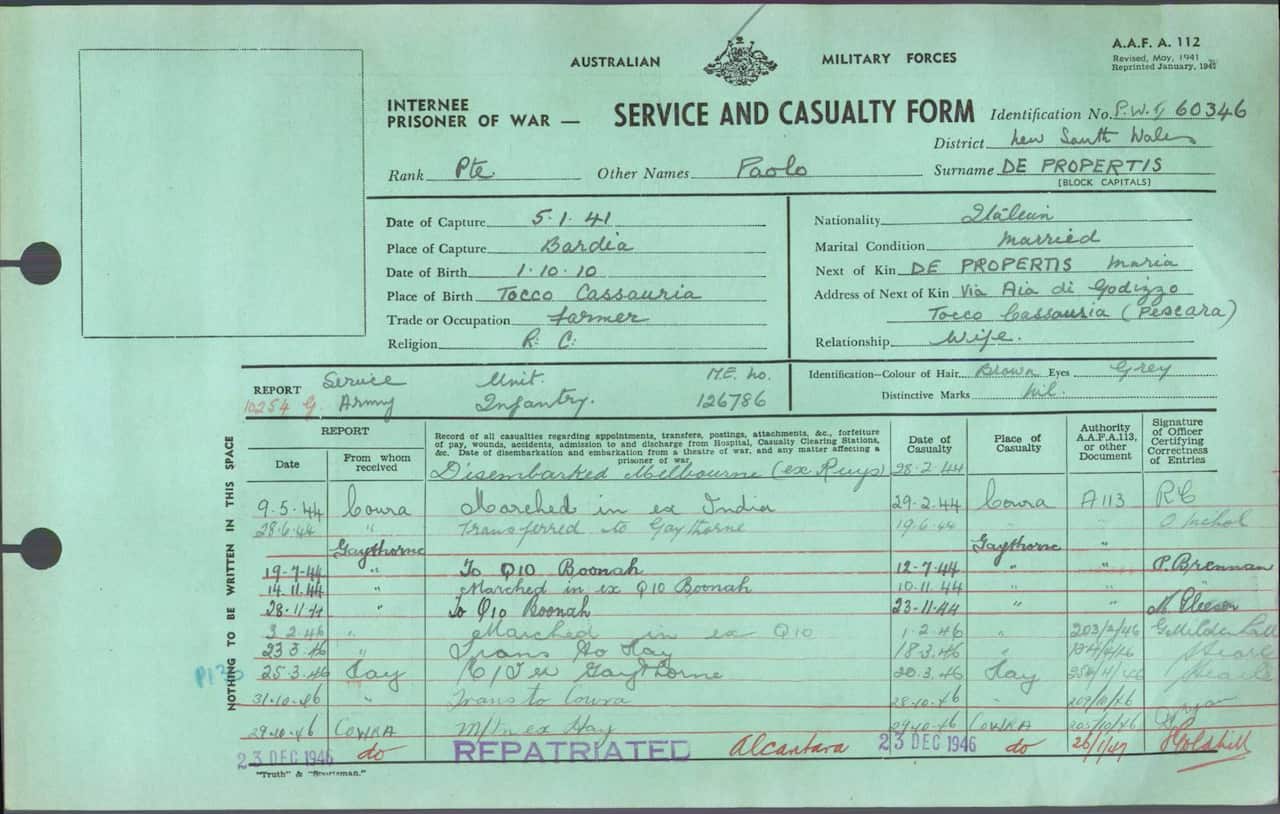 A.A.F. A. 112
Revised, May, 1941
Reprinted January, 194
AUSTRALIAN MILITARY FORCES
INTERNEE
PRISONER OF WAR — SERVICE AND CASUALTY FORM Identification No. P.W.I 60346
District New South Wales
Rank Pte Other Names Paolo Surname DE PROPERTIS
(BLOCK CAPITALS)
Date of Capture 5.1.41
Place of Capture Bardia
Date of Birth 1.10.10
Place of Birth Tocco Cassauria
Trade or Occupation Farmer
Religion R. C.
Nationality Italian
Marital Condition Married
Next of Kin DE PROPERTIS Maria
Address of Next of Kin Via Aia di Godizzo
Tocco Cassauria (Pescara)
Relationship Wife.
REPORT Service Unit. M.E. No.
10254 G. Army Infantry. 126786
Identification—Colour of Hair Brown Eyes Grey
Distinctive Marks Nil.
NOTHING TO BE WRITTEN IN THIS SPACE
REPORT
Date
From whom received
Record of all casualties regarding appointments, transfers, postings, attachments, &c., forfeiture
of pay, wounds, accidents, admission to and discharge from Hospital, Casualty Clearing Stations,
&c. Date of disembarkation and embarkation from a theatre of war, and any matter affecting a
prisoner of war.
Date of Casualty
Place of Casualty
Authority A.A.F.A.113, or other Document
Signature of Officer Certifying Correctness of Entries
Disembarked Melbourne (ex Ruys) 28.2.44
9.5.44 Cowra Marched in ex India 29.2.44 Cowra A113
28.6.44 " Transferred to Gaythorne 19.6.44 " "
Gaythorne Gaythorne "
19.7.44 " To Q10 Boonah 12.7.44 " " P. Brennan
14.11.44 " Marched in ex Q10 Boonah 10.11.44 "
28.11.44 " To Q10 Boonah 23.11.44 " " M. Gleeson
3.2.46 " Marched in ex Q10 1.2.46 " 203/2/46
23.3.46 " Trans to Hay 18.3.46 "
25.3.46 Hay M/I ex Gaythorne 20.3.46 Hay
31.10.46 " Trans to Cowra 28.10.46 " 209/10/46
29.10.46 COWRA M/In ex Hay 29.10.46 COWRA
23 DEC 1946 do REPATRIATED Alcantara 23 DEC 1946 do 26/1/47
"Truth" & "Sportsman."